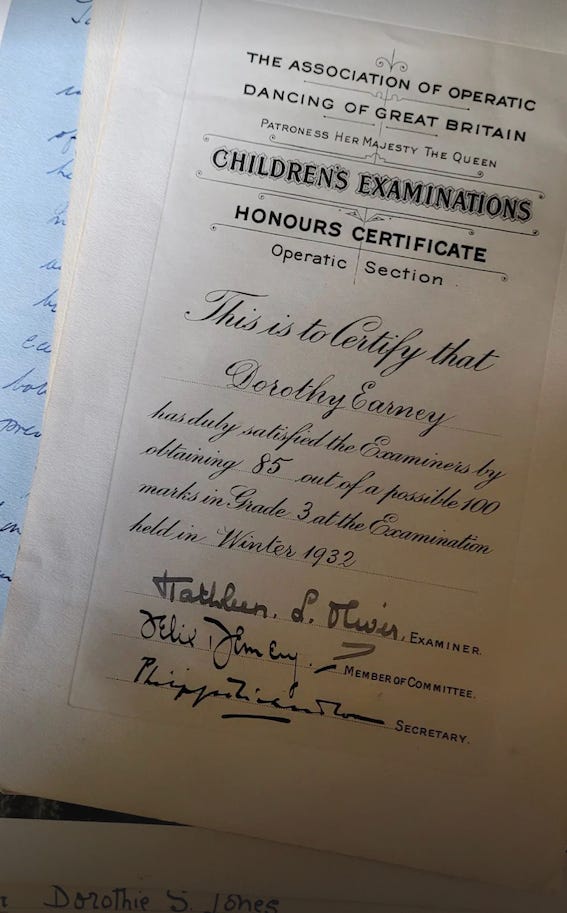 THE ASSOCIATION OF OPERATIC
DANCING OF GREAT BRITAIN
PATRONESS HER MAJESTY THE QUEEN
CHILDREN'S EXAMINATIONS
HONOURS CERTIFICATE
Operatic Section
This is to Certify that
Dorothy Earney
has duly satisfied the Examiners by
obtaining 85 out of a possible 100
marks in Grade 3 at the Examination
held in Winter 1932
Kathleen. S. Oliver, EXAMINER.
MEMBER OF COMMITTEE.
SECRETARY.
Dorothie S. Jones